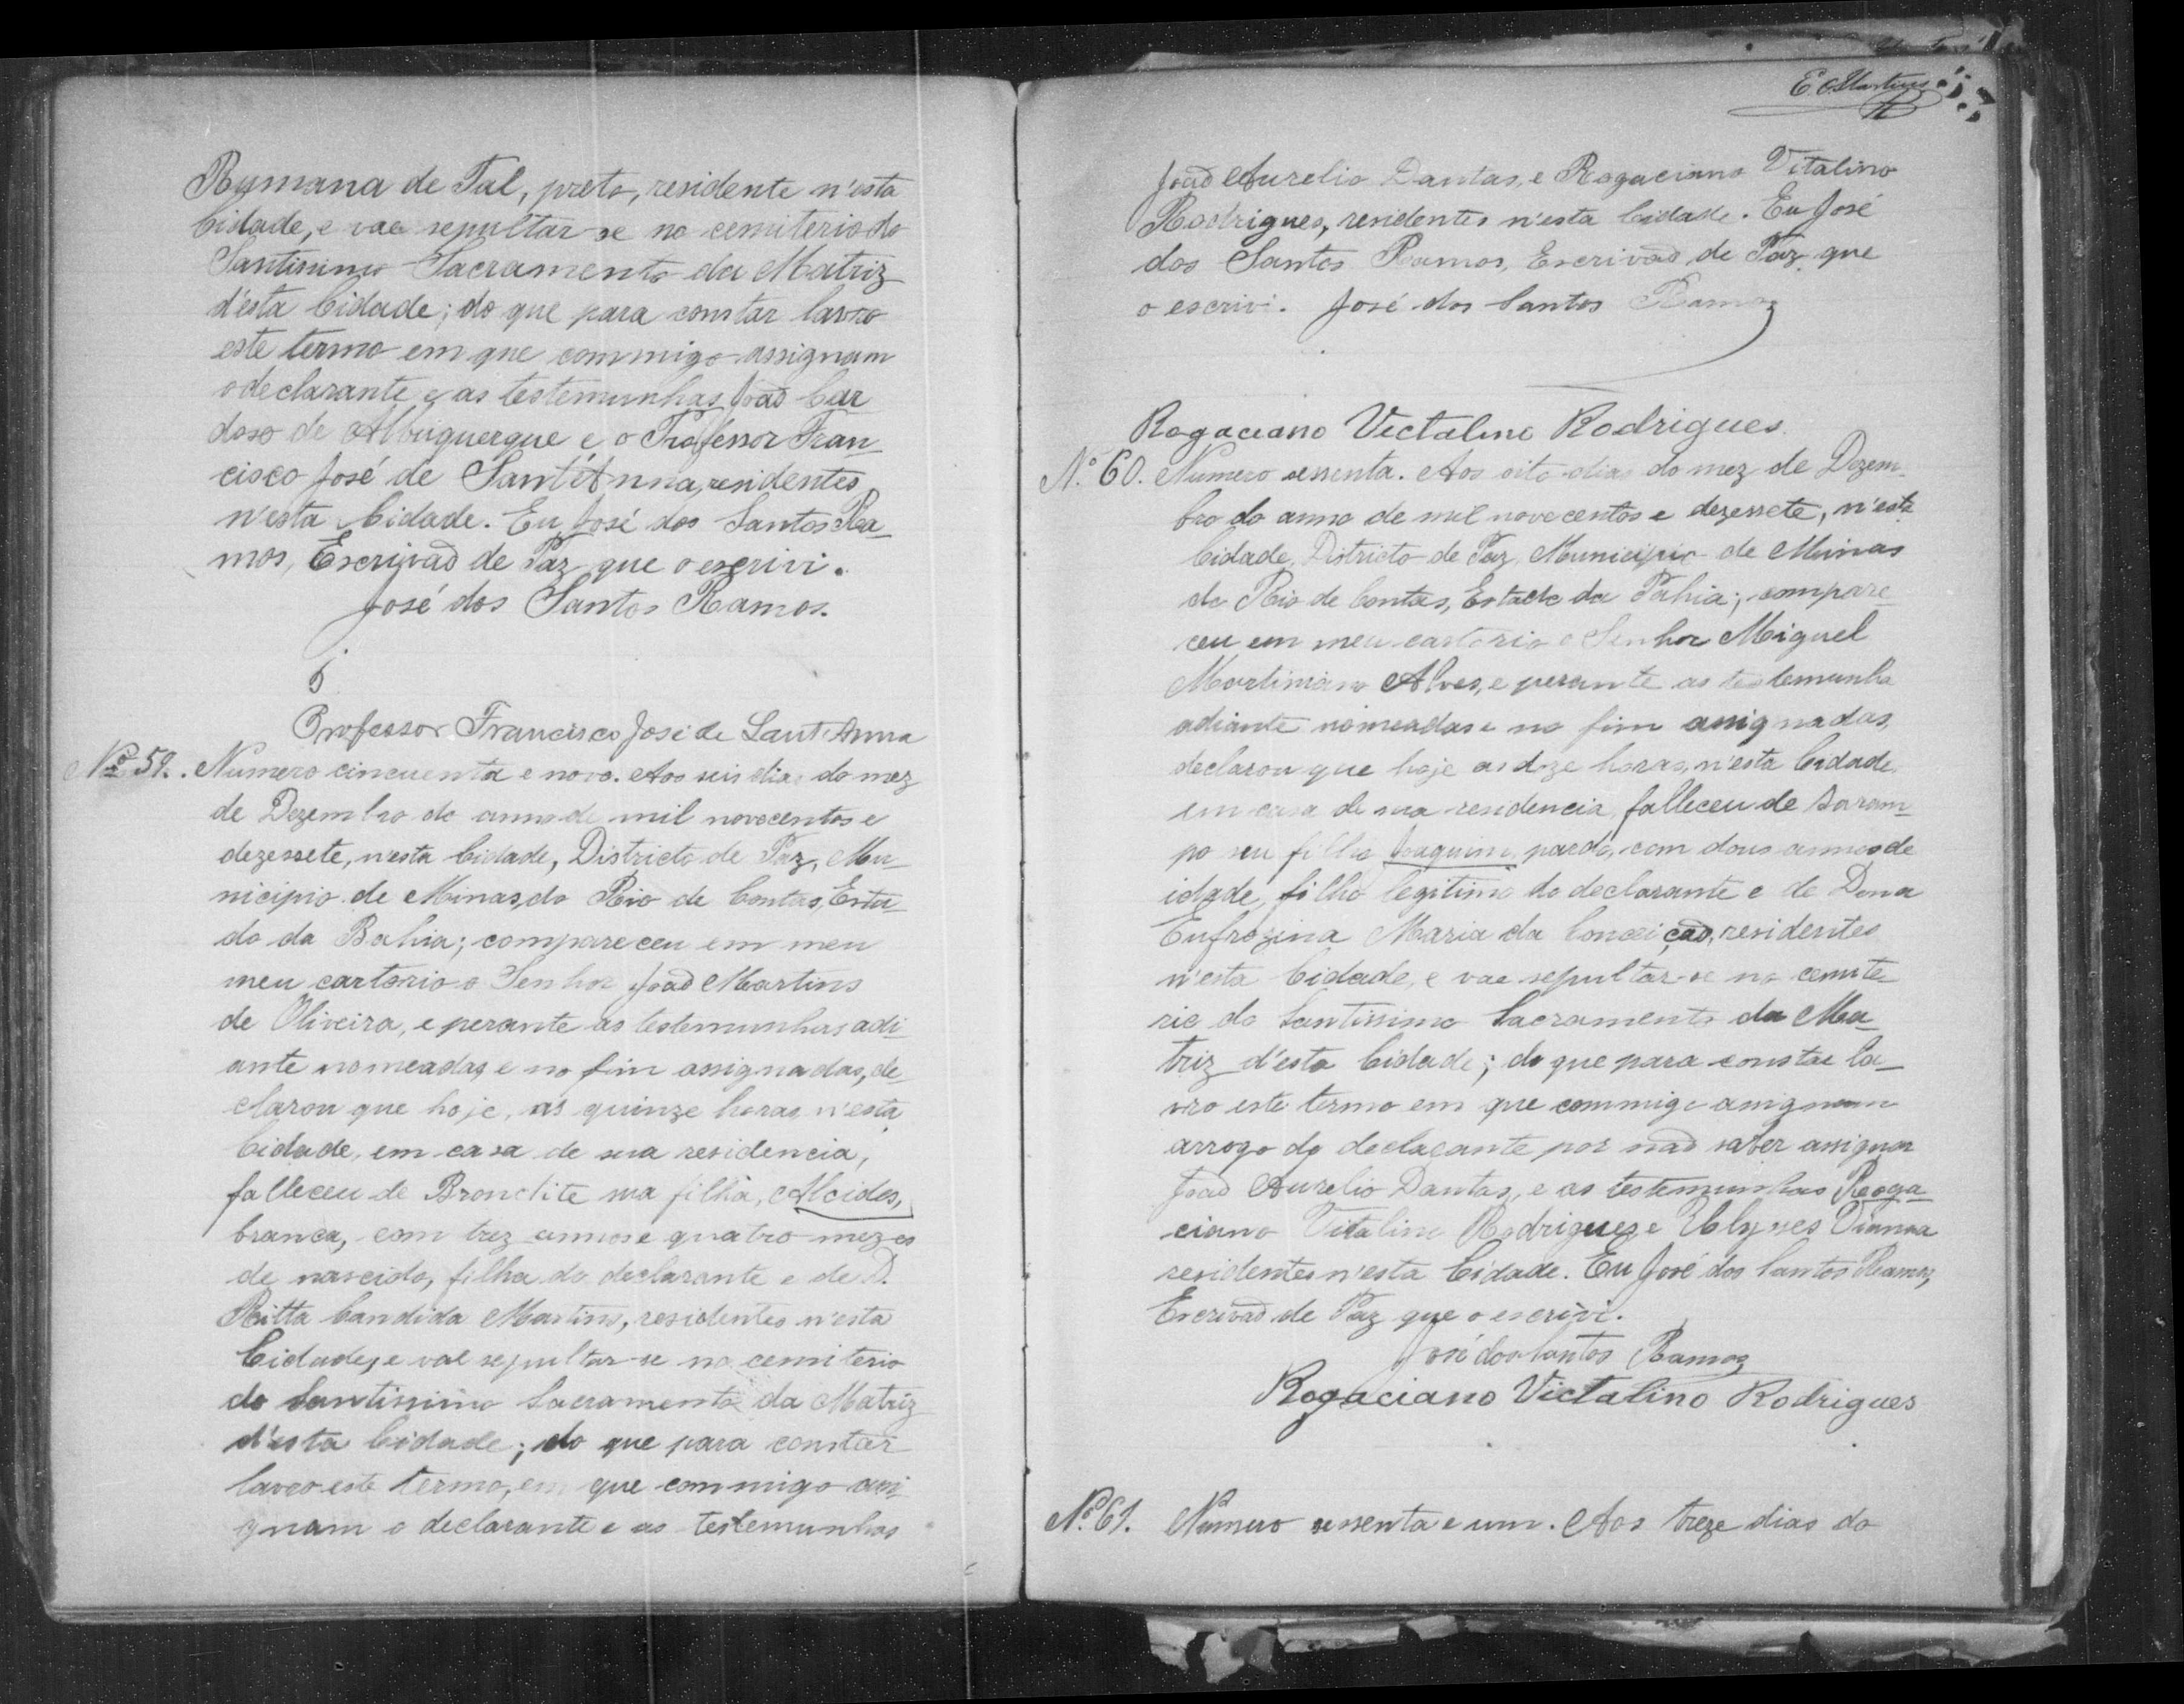 Rymana de Tal, preto, residente n'esta
Cidade, e vae sepultar se no cemiterio do
Santissimo Sacramento da Matriz
d'esta Cidade; do que para constar lavro
este termo em que commigo assignam
o declarante e as testemunhas João Car
doso de Albuquerque e o Professor Fran_
cisco José de Sant'Anna, residentes
n'esta Cidade. Eu José dos Santos Ra_
mos, Escrivão de Paz que o escrivi.
José dos Santos Ramos.
Professor Francisco José de Sant'Anna
Nº 59. Numero cincuenta e nove. Aos seis dias do mez
de Dezembro do anno de mil novecentos e
dezessete, n'esta Cidade, Districto de Paz, Mu_
nicipio de Minas do Rio de Contas, Esta_
do da Bahia; compareceu em meu
meu cartorio o Senhor João Martins
de Oliveira, e perante as testemunhas adi_
ante nomeadas e no fim assignadas, de_
clarou que hoje, as quinze horas n'esta
Cidade, em casa de sua residencia,
falleceu de Bronclite sua filha, Alcides,
branca, com trez annos e quatro mezes
de nascido, filha do declarante e de D.
Ritta Candida Martins, residentes n'esta
Cidade, e vae sepultar-se no cemiterio
do Santissimo Sacramento da Matriz
d'esta Cidade; do que para constar
lavro este termo, em que commigo assi_
gnam o declarante e as testemunhas
E. C. Martins
João Aurelio Dantas, e Rogaciano Vitalino
Rodrigues, residentes n'esta Cidade. Eu José
dos Santos Ramos, Escrivão de Paz que
o escrivi. José dos Santos Ramos
Rogaciano Victalino Rodrigues.
Nº 60. Numero sessenta. Aos oito dias do mez de Dezem_
bro do anno de mil novecentos e dezessete, n'esta
Cidade, Districto de Paz, Municipio de Minas
do Rio de Contas, Estado da Bahia; compare_
ceu em meu cartorio o Senhor Miguel
Martiniano Alves, e perante as testemunha
adiante nomeadas e no fim assignadas,
declarou que hoje as doze horas, n'esta Cidade,
em casa de sua residencia, falleceu de saram_
po seu filho Joaquim, pardo, com dous annos de
idade, filho legitimo do declarante e de Dona
Eufrozina Maria da Conceição, residentes
n'esta Cidade, e vae sepultar-se no cemite_
rio do Santissimo Sacramento da Ma_
triz d'esta Cidade; do que para constar la_
vro este termo em que commigo assignam
arrogo do declarante por não saber assignar
João Aurelio Dantas, e as testemunhas Roga_
ciano Vitalino Rodrigues e Ulysses Vianna
residentes n'esta Cidade. Eu José dos Santos Ramos,
Escrivão de Paz que o escrivi.
José dos Santos Ramos
Rogaciano Victalino Rodrigues
Nº 61. Numero sessenta e um. Aos treze dias do